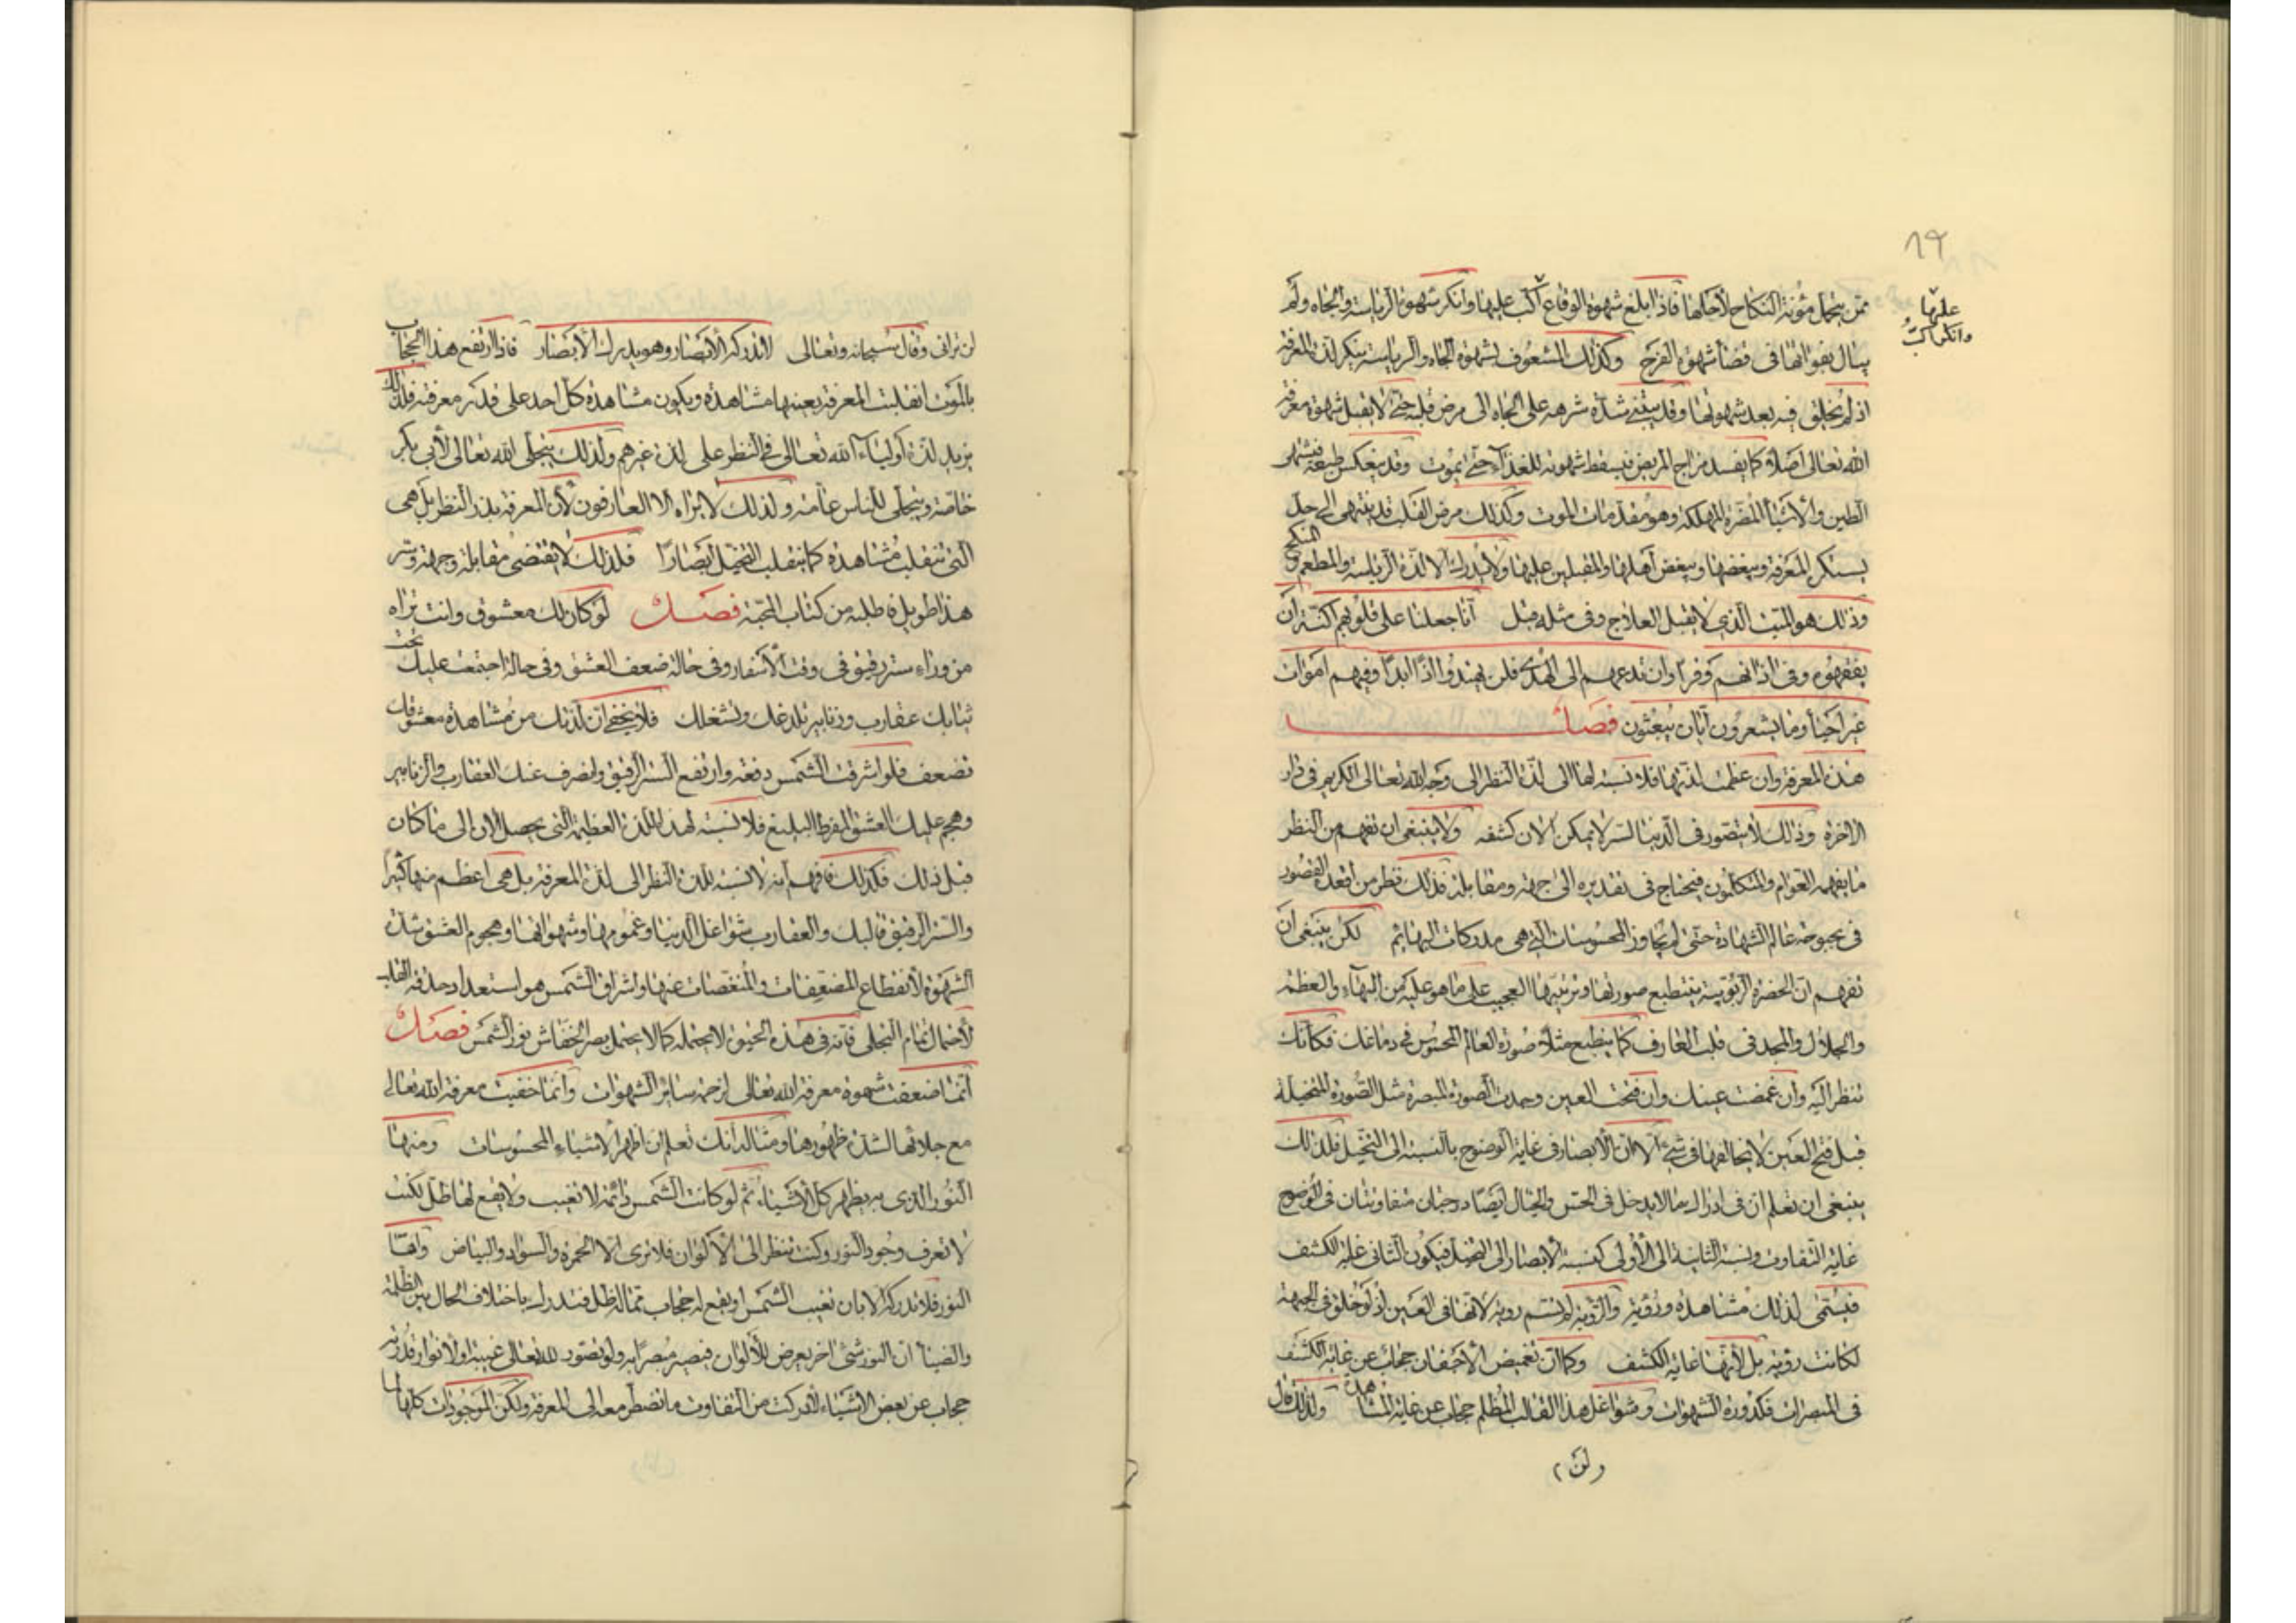 ٨٩
عليها
وانكر اكبّ
ممّن يتحمل مؤنة النكاح لاجلها فاذا بلغ شهوة الوقاع اكب عليها وانكر شهوة الرياسة والجاه ولم
يبال بفواتها في قضا شهوة الفرج وكذلك المشعوف لشهوة الجاه والرياسة ينكر لذة المعرفة
اذ لم يخلق فيه بعد شهوتها وقد ينتهي شدّة شرهه على الجاه الى مرض قلبه حتى لا يقبل شهوة معرفة
الله تعالى اصلا كما يفسد مزاج المريض فيسقط شهوته للغذآء حتى يموت وقد ينعكس طبعه فيشتهى
الطين والاشيا المضرة المهلكة وهو مقدمات الموت وكذلك مرض القلب قد ينتهى الى حدّ
يستنكر المعرفة ويبغضها ويبغض اهلها والمقبلين عليها ولا يدرك الا لذة الرياسة والمطعم والمنكح
وذلك هو الميّت الذي لا يقبل العلاج وفي مثله قيل انا جعلنا على قلوبهم اكنّة ان
يفقهوه وفي اذانهم وقرا وان تدعهم الى الهدى فلن يهتدوا اذًا ابدًا وفيهم اموات
غير احيآ وما يشعرون ايّان يبعثون فصل
هذه المعرفة وان عظمت لذتها فلا نسبة لها الى لذّة النظر الى وجه الله تعالى الكريم في دار
الاخرة وذلك لا يتصوّر في الدنيا لسرّ لا يمكن الان كشفه ولا ينبغي ان تفهم من النظر
ما يفهمه العوام والمتكلمون فيحتاج في تقديره الى جهة ومقابلة فذلك نظر من اقعده القصور
في بحبوحة عالم الشهادة حتى لم يجاوز المحسوسات التي هي مدركات البهايم لكن ينبغي ان
تفهم انّ الحضرة الربوبية ينطبع صورتها وترتيبها العجيب على ما هو عليه من البهآء والعظمة
والجلال والمجد في قلب العارف كما ينطبع مثلا صورة العالم المحسوس في دماغك فكانّك
تنظر اليه وان غمضت عينك وان فتحت العين وجدت الصورة المبصرة مثل الصّورة المتخيلة
قبل فتح العين لا يخالفها في شئ الا انّ الابصار في غاية الوضوح بالنسبة الى التخيل فلذلك
ينبغي ان تعلم ان في ادراك ما لا يدخل في الحسّ والخيال ايضًا درجتان متفاوتتان في الوضوح
غاية التفاوت ونسبة الثانية الى الأولى كنسبة الابصار الى التخيل فيكون الثاني غاية الكشف
فيسمّى لذلك مشاهدة ورؤية والرّؤية لم تسم روية لانها في العين اذ لو خلق في الجبهة
لكانت رؤية بل لانها غاية الكشف وكما ان تغميض الاجفان حجاب عن غاية الكشف
في المبصرات فكدورة الشهوات وشواغل هذا القالب المظلم حجاب عن غاية المشاهدة ولذلك قال
لن
لن تراني وقال سبحانه وتعالى لا تدركه الأبصار وهو يدرك الأبصار فاذا ارتفع هذا الحجاب
بالموت انقلبت المعرفة بعينها مشاهدة ويكون مشاهدة كل احد على قدر معرفته فلذلك
يزيد لذّة اوليآء الله تعالى في النظر على لذة غيرهم ولذلك يتجلّى الله تعالى لأبي بكر
خاصّة ويتجلى للناس عامة ولذلك لا يراه الا العارفون لان المعرفة بذر النظر بل هي
الّتي تنقلب مشاهدة كما ينقلب التخيّل ابصارًا فلذلك لا يقتضى مقابلة وجهة وسر
هذا طويل فاطلبه من كتاب المحبّة فصل لو كان لك معشوق وانت تراه
من وراء ستر رقيق في وقت الأسفار وفي حالة ضعف العشق وفي حالة اجتمعت عليك تحت
ثيابك عقارب وزنابير تلدغك وتشغلك فلا يخفى ان لذّتك من مشاهدة معشوقك
تضعف فلو اشرقت الشمس دفعة وارتفع الستر الرقيق وانصرف عنك العقارب والزنابير
وهجم عليك العشق المفرط البليغ فلا نسبة لهذه اللذة العظيمة التي يحصل الان الى ما كان
قبل ذلك فكذلك فافهم انه لا نسبة للذة النظر الى لذة المعرفة بل هي اعظم منها كثيرًا
والستر الرقيق قالبك والعقارب شواغل الدنيا وغمومها وشهواتها وهجوم العشق شدّة
الشهوة لانقطاع المضعفات والمنغصات عنها واشراق الشمس هو استعداد حدقة القلب
لأحتمال تمام التجلى فانه في هذه الحيوة لا يحتمله كما لا يحتمل بصر الخفّاش نور الشمس فصل
انّما ضعفت شهوة معرفة الله تعالى لزحمة سائر الشهوات وانّما خفيت معرفة الله تعالى
مع جلائها لشدّة ظهورها ومثاله انك تعلم ان اظهر الاشياء المحسوسات ومنها
النّور الذي به يظهر كل الأشياء ثم لو كانت الشّمس دائمة لا تغيب ولا يقع لها ظلّ لكنت
لا تعرف وجود النور وكنت تنظر الى الألوان فلا ترى الا الحمرة والسواد والبياض وامّا
النور فلا تدركه الا بان تغيب الشّمس او يقع له حجاب بماله ظل فتدرك باختلاف الحال بين الظلمة
والضيآ ان النور شئ اخر يعرض للألوان فيصير مبصرًا به ولو تصور لله تعالى غيبة او لأنوار قدرته
حجاب عن بعض الاشياء لأدركت من التفاوت ما تضطر معه الى المعرفة ولكن الموجودات كلها لما